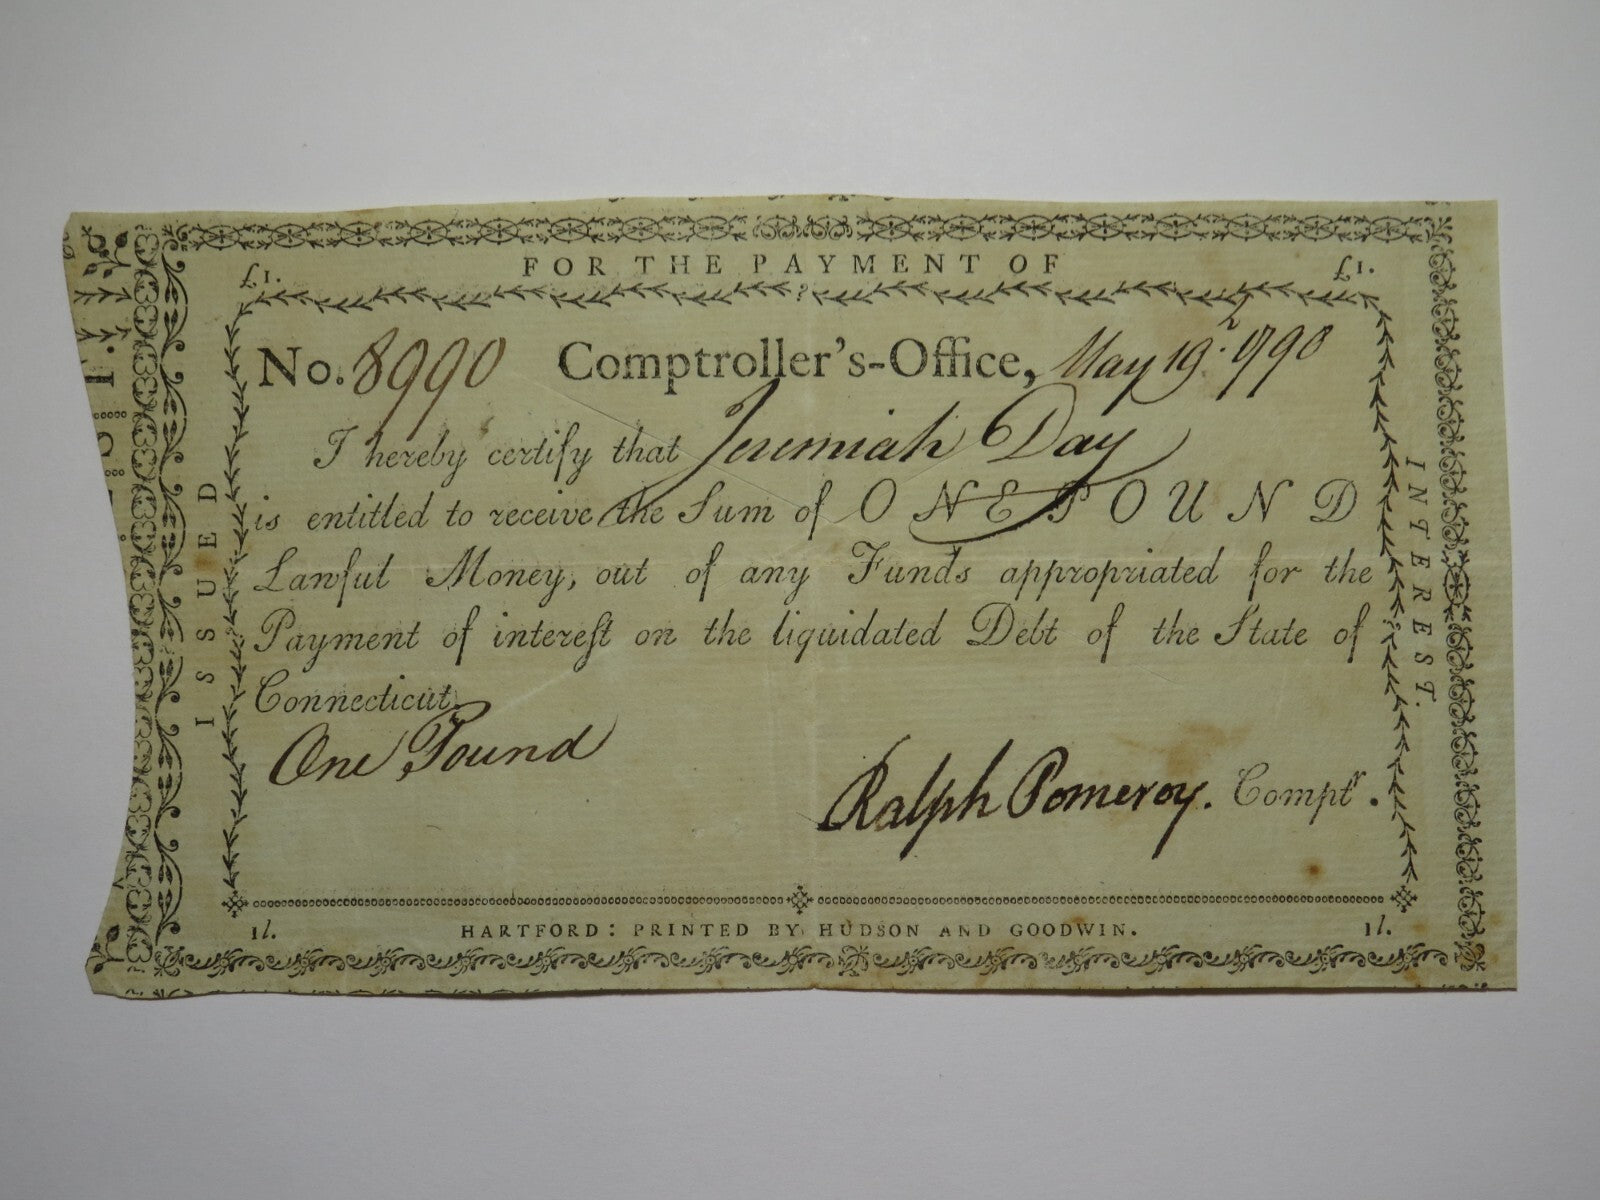 FOR THE PAYMENT OF
£1.
£1.
No. 8990 Comptroller's-Office, May 19. 1790
I hereby certify that Jeremiah Day
is entitled to receive the Sum of ONE POUND
Lawful Money, out of any Funds appropriated for the
Payment of intereſt on the liquidated Debt of the State of
Connecticut.
One Pound
Ralph Pomeroy. Comptr.
ISSUED
INTEREST.
1l.
HARTFORD: PRINTED BY HUDSON AND GOODWIN.
1l.